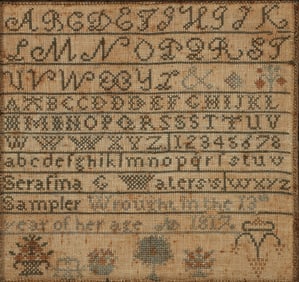 A B C D E F G H I K
L M N O P Q R S T
U V W X Y Z &
A A B C C D D D E F G H I J K L
M M N N O P Q R S S T T U V
W W X Y Z 1 2 3 4 5 6 7 8
a b c d e f g h i k l m n o p q r ſ t u v
Serafina G Waters s w x z
Sampler Wrought In the 13th
year of her age AD 1817.